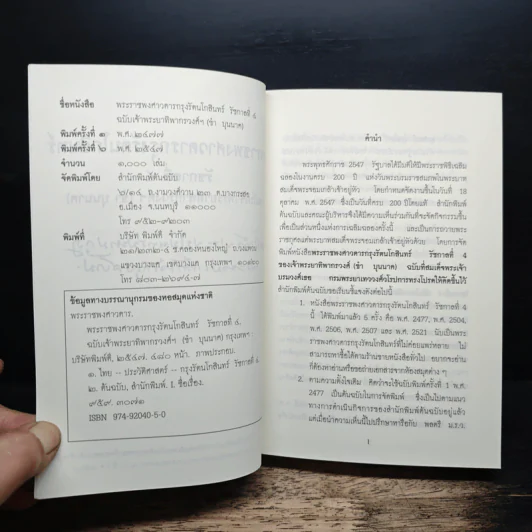 ชื่อหนังสือ พระราชพงศาวดารกรุงรัตนโกสินทร์ รัชกาลที่ ๔
ฉบับเจ้าพระยาทิพากรวงศ์ฯ (ขำ บุนนาค)
พิมพ์ครั้งที่ ๑ พ.ศ. ๒๔๗๗
พิมพ์ครั้งที่ ๖ พ.ศ. ๒๕๔๗
จำนวน ๑,๐๐๐ เล่ม
จัดพิมพ์โดย สำนักพิมพ์ต้นฉบับ
ถ.งามวงศ์วาน ๒๓ ต.บางกระสอ
อ.เมือง จ.นนทบุรี ๑๑๐๐๐
โทร ๙๕๒-๙๒๐๓
พิมพ์ที่ บริษัท พิมพ์ดี จำกัด
ข้อมูลทางบรรณานุกรมของหอสมุดแห่งชาติ
พระราชพงศาวดาร.
พระราชพงศาวดารกรุงรัตนโกสินทร์ รัชกาลที่ ๔.
ฉบับเจ้าพระยาทิพากรวงศ์ฯ (ขำ บุนนาค) กรุงเทพฯ :
บริษัทพิมพ์ดี, ๒๕๔๗. ๔๘๐ หน้า. ภาพประกอบ.
๑. ไทย – ประวัติศาสตร์ – กรุงรัตนโกสินทร์ รัชกาลที่ ๔.
๒. ต้นฉบับ, สำนักพิมพ์. I. ชื่อเรื่อง.
๙๕๙. ๓๐๗๑
ISBN 974-92040-5-0
คำนำ
พระพุทธศักราช 2547 รัฐบาลได้มีมติให้มีพระราชพิธีเฉลิม
ฉลองในงานครบ 200 ปี แห่งวันพระบรมราชสมภพในพระบาท
สมเด็จพระจอมเกล้าเจ้าอยู่หัว โดยกำหนดจัดงานขึ้นในวันที่ 18
ตุลาคม พ.ศ. 2547 ซึ่งเป็นวันที่ครบ 200 ปีโดยแท้ สำนักพิมพ์
ต้นฉบับและคณะผู้บริหารจึงได้มีความเห็นร่วมกันที่จะจัดกิจกรรมขึ้น
เพื่อเป็นส่วนหนึ่งแห่งการเฉลิมฉลองครั้งนี้ และเป็นการถวายพระ
ราชกุศลแด่พระบาทสมเด็จพระจอมเกล้าเจ้าอยู่หัวด้วย โดยการจัด
พิมพ์หนังสือพระราชพงศาวดารกรุงรัตนโกสินทร์ รัชกาลที่ 4
ของเจ้าพระยาทิพากรวงศ์ (ขำ บุนนาค) ฉบับที่สมเด็จพระเจ้า
บรมวงศ์เธอ กรมพระยาเทววงศ์วโรปการทรงโปรดให้คัดขึ้นไว้
สำนักพิมพ์ต้นฉบับขอเรียนชี้แจงดังต่อไปนี้
1. หนังสือพระราชพงศาวดารกรุงรัตนโกสินทร์ รัชกาลที่ 4
นี้ ได้พิมพ์มาแล้ว 5 ครั้ง คือ พ.ศ. 2477, พ.ศ. 2504,
พ.ศ. 2506, พ.ศ. 2507 และ พ.ศ. 2521 นับเป็นพระ
ราชพงศาวดารกรุงรัตนโกสินทร์ที่ไม่ค่อยแพร่หลาย ไม่
สามารถหาซื้อได้ตามร้านขายหนังสือทั่วไป อยากจะอ่าน
ก็ต้องหาอ่านหรือขอถ่ายเอกสารจากห้องสมุดต่าง ๆ
2. ตามความตั้งใจเดิม คิดว่าจะใช้ฉบับพิมพ์ครั้งที่ 1 พ.ศ.
2477 เป็นต้นฉบับในการจัดพิมพ์ ซึ่งเป็นไปตามแนว
ทางการดำเนินกิจการของสำนักพิมพ์ต้นฉบับอยู่แล้ว
แต่เมื่อนำความเห็นนี้ไปปรึกษาหารือกับ พลตรี ม.ร.ว.
1